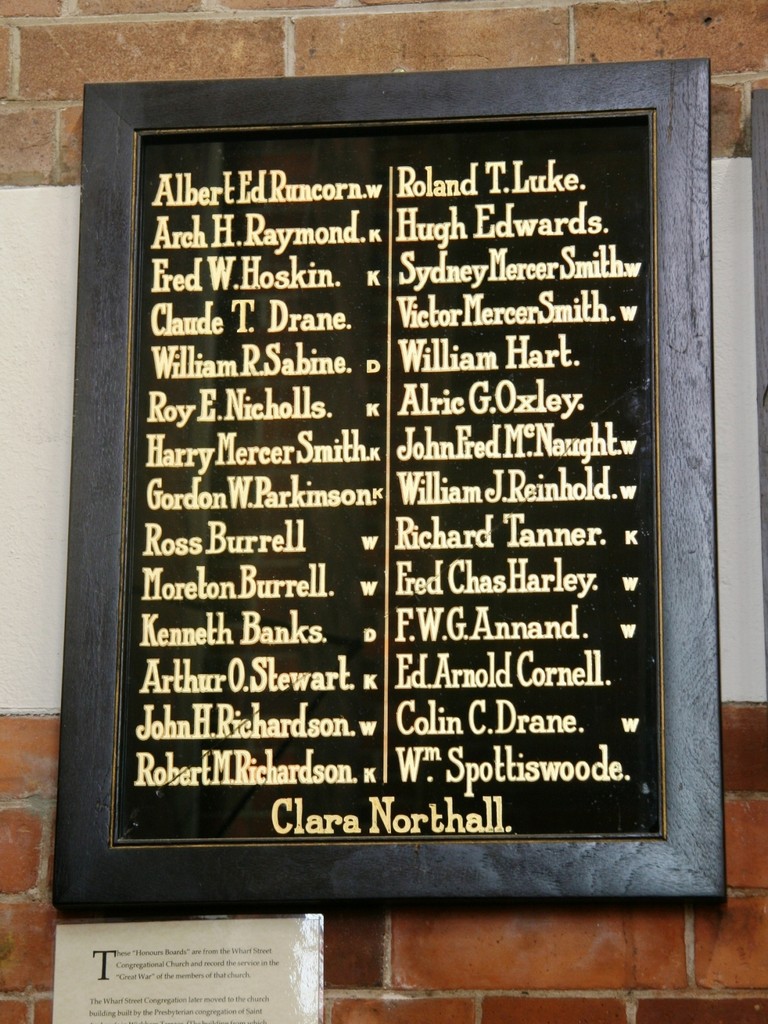 Albert Ed. Runcorn. W
Arch H. Raymond. K
Fred W. Hoskin. K
Claude T. Drane.
William R. Sabine. D
Roy E. Nicholls. K
Harry Mercer Smith. K
Gordon W. Parkinson. K
Ross Burrell W
Moreton Burrell. W
Kenneth Banks. D
Arthur O. Stewart. K
John H. Richardson. W
Robert M. Richardson. K
Roland T. Luke.
Hugh Edwards.
Sydney Mercer Smith. W
Victor Mercer Smith. W
William Hart.
Alric G. Oxley.
John Fred McNaught. W
William J. Reinhold. W
Richard Tanner. K
Fred Chas Harley. W
F. W. G. Annand. W
Ed. Arnold Cornell.
Colin C. Drane. W
Wm. Spottiswoode.
Clara Northall.
These "Honours Boards" are from the Wharf Street
Congregational Church and record the service in the
"Great War" of the members of that church.
The Wharf Street Congregation later moved to the church
building built by the Presbyterian congregation of Saint